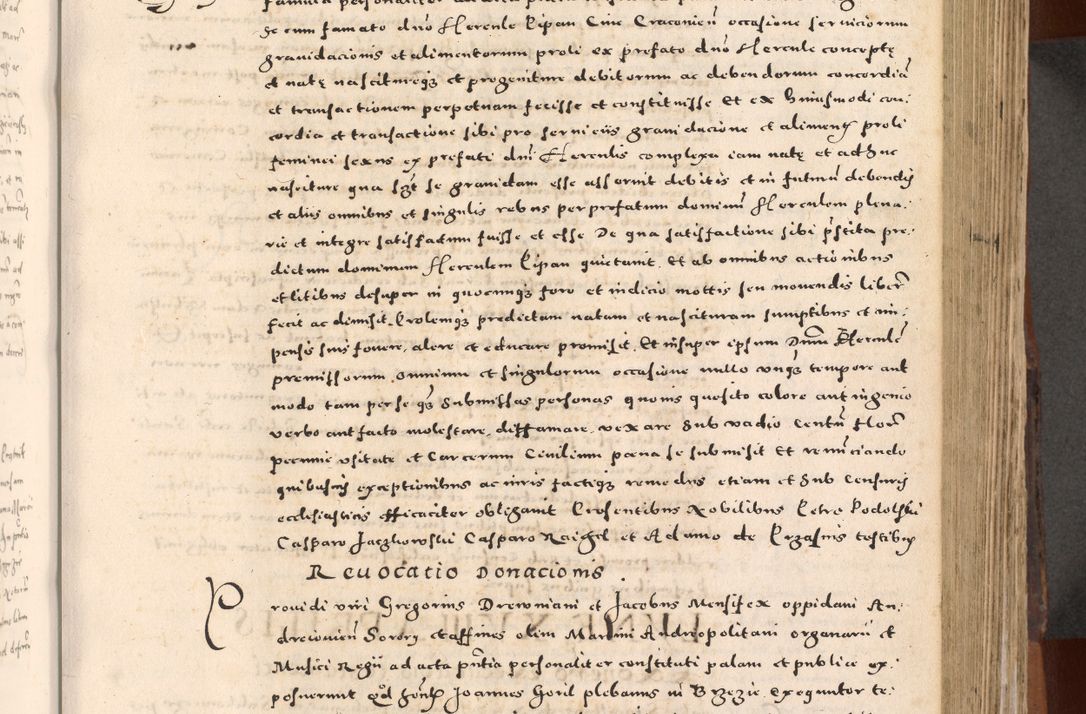 se cum famato dno Hercule Kipan Cive Cracovien occasione serviciorum
gravidacionis et alimentorum proli ex prefato dno Hercule conceptę
et natę nascitureqз et progeniture debitorum ac debendorum concordiā
et transactionem perpetuam fecisse et constituisse Et ex huiusmodi con:
cordia et transactione sibi pro serviciis gravidacione et aliment proli
feminei sexus ex prefati dni Herculis complexu iam natę et adhuc
nasciture qua se gravidam esse asseruit debitis et in futurū debendis
et aliis omnibus et singulis rebus per prefatum dominū Herculem plena:
rie et integre satisfactum fuisse et esse De qua satisfactione sibi prestita pre:
dictum dominum Herculem Kipan quietavit. Et ab omnibus actionibus
et litibus desuper in quocunqз foro et iudicio mottis seu movendis liberū
fecit ac dimisit. Prolemqз predictam natam et nascituram sumptibus et im:
pensis suis fovere, alere et educare promisit. Et insuper ipsum Dnum Hercule
premissorum omnium et singulorum occasione nullo unqз tempore aut
modo tam per se qз submissas personas quovis quesito colore aut ingenio
verbo aut facto molestare, diffamare, vexare sub vadio Centū floren
pecunie usitate et Carcerum Civilium poena se submisit Et renūciando
quibusvis exceptionibus ac iuris factiqз remediis etiam et sub Censuris
ecclesiasticis efficaciter obligavit Presentibus Nobilibus Petro Podolski
Casparo Jaczkowski Casparo Raigel et Adamo de Krzasnis testibus
Revocatio Donacionis.
Providi viri Gregorius Drewniani et Jacobus Mensifex oppidani An:
dreiovien Sorory et affines olim Martini Andreopolitani organarii et
Musici Regii ad acta pntia personaliter constituti palam et publice ex:
posuerunt qd Joannes Goril plebanus in Brzezie exequutor te: